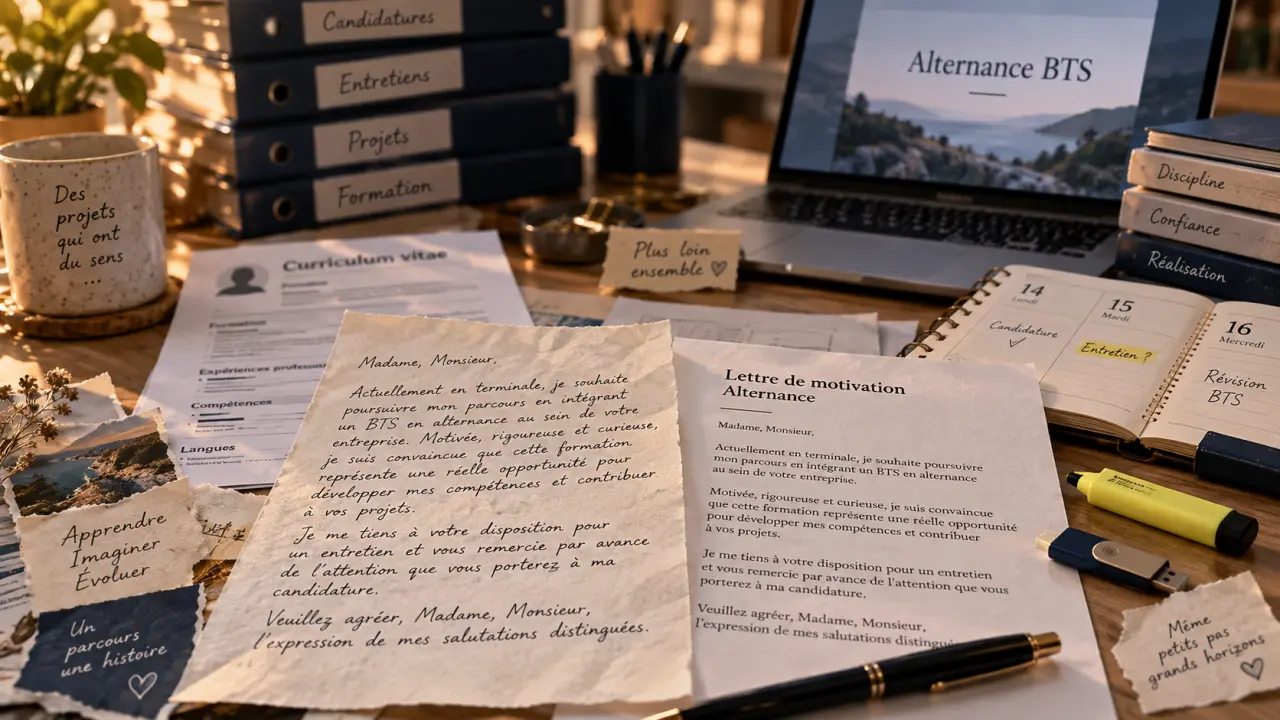 Candidatures
Entretiens
Projets
Formation
Alternance BTS
Discipline
Confiance
Réalisation
Des
projets
qui ont
du sens
...
Plus loin
ensemble ♡
Curriculum vitae
Formation
Formation
Compétences
Langues
14
Lundi
Candidature
✓
15
Mardi
Entretien ?
16
Mercredi
Révision
BTS
Madame, Monsieur,
Actuellement en terminale, je souhaite
poursuivre mon parcours en intégrant
un BTS en alternance au sein de votre
entreprise. Motivée, rigoureuse et curieuse,
je suis convaincue que cette formation
représente une réelle opportunité pour
développer mes compétences et contribuer
à vos projets.
Je me tiens à votre disposition pour
un entretien et vous remercie par avance
de l'attention que vous porterez à ma
candidature.
Veuillez agréer, Madame, Monsieur,
l'expression de mes salutations distinguées.
Lettre de motivation
Alternance
Madame, Monsieur,
Actuellement en terminale, je souhaite poursuivre
mon parcours en intégrant un BTS en alternance
au sein de votre entreprise.
Motivée, rigoureuse et curieuse, je suis convaincue
que cette formation représente une réelle opportunité
pour développer mes compétences et contribuer
à vos projets.
Je me tiens à votre disposition pour un entretien
et vous remercie par avance de l'attention que vous
porterez à ma candidature.
Veuillez agréer, Madame, Monsieur,
l'expression de mes salutations
Apprendre
Imaginer
Évoluer
Un
parcours
une histoire
♡
Même
petits pas
grands horizons
♡